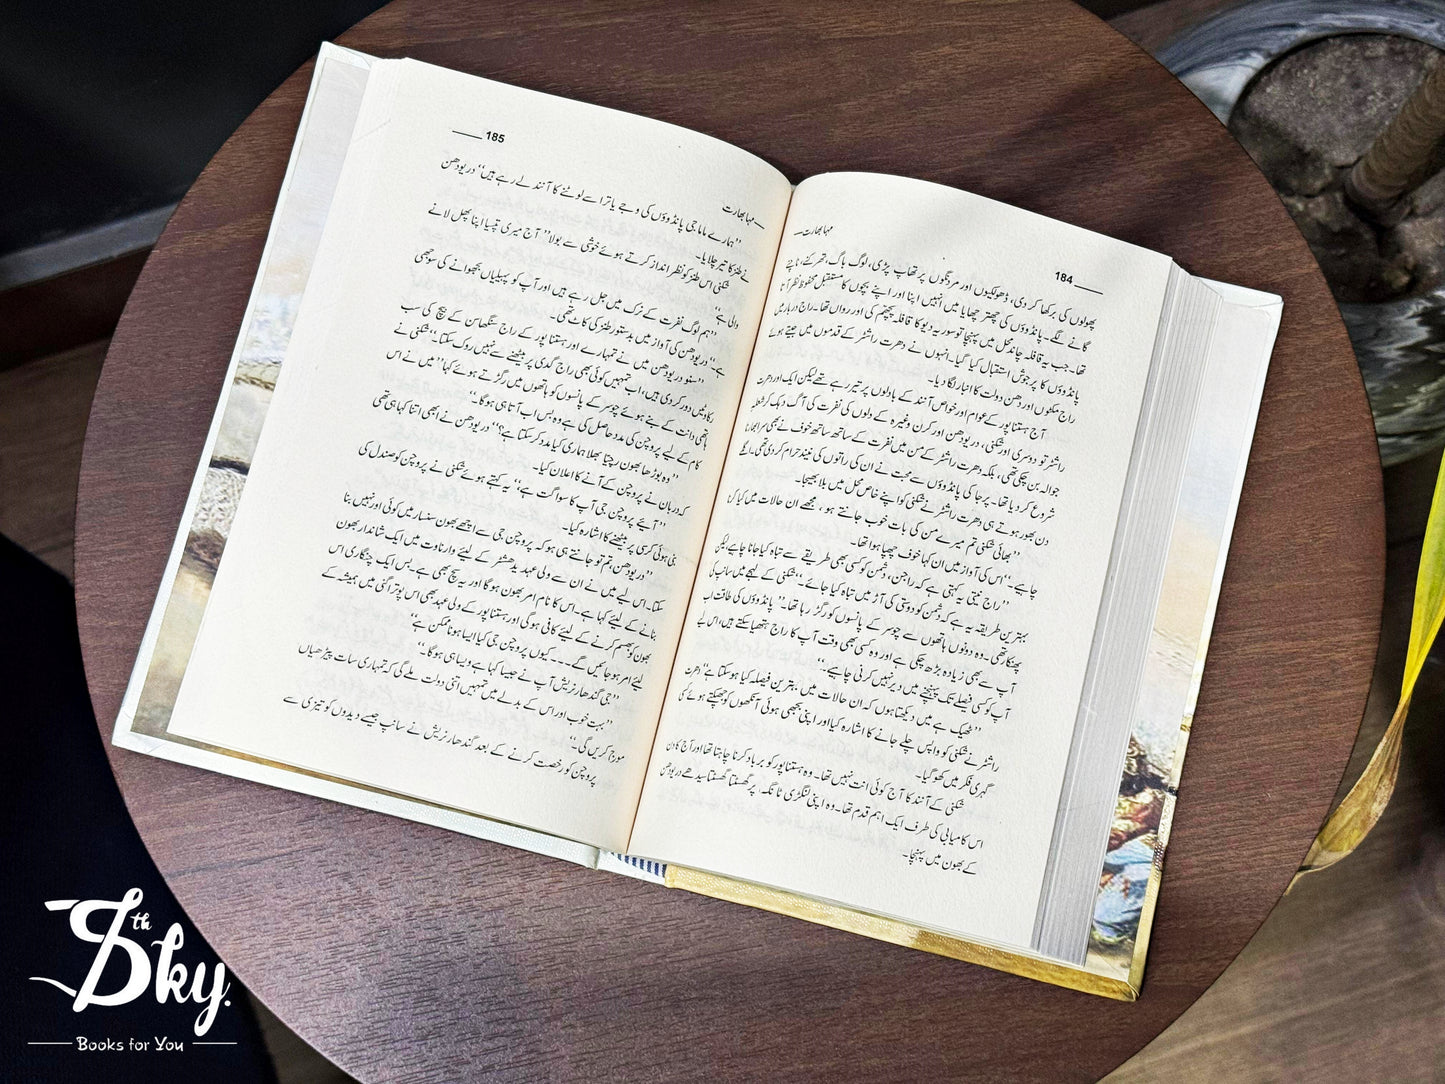 مہا بھارت
184
پھولوں کی برکھا کر دی، ڈھولکیوں اور مردنگوں پر تھاپ پڑی، لوگ باگ، تھرکنے، ناچنے
گانے لگے۔ پانڈوؤں کی چھتر چھایا میں انہیں اپنا اور اپنے بچوں کا مستقبل محفوظ نظر آتا
تھا۔ جب یہ قافلہ چاند محل میں پہنچا تو سوریہ دیو کا قافلہ پچھم کی اور رواں تھا۔ راج دربار میں
پانڈوؤں کا پرجوش استقبال کیا گیا۔ انہوں نے دھرت راشٹر کے قدموں میں جیتے ہوئے
راج مکٹوں اور دھن دولت کا انبار لگا دیا۔
آج ہستنا پور کے عوام اور خواص آنند کے بادلوں پر تیر رہے تھے لیکن ایک اور دھرت
راشٹر تو دوسری اور شکنی، دریودھن اور کرن وغیرہ کے دلوں کی نفرت کی آگ دہک کر شعلہ
جوالہ بن چکی تھی، بلکہ دھرت راشٹر کے من میں نفرت کے ساتھ ساتھ خوف نے بھی سر ابھارنا
شروع کر دیا تھا۔ پرجا کی پانڈوؤں سے محبت نے ان کی راتوں کی نیند حرام کر دی تھی۔ اگلے
دن بھور ہوتے ہی دھرت راشٹر نے شکنی کو اپنے خاص محل میں بلا بھیجا۔
"بھائی شکنی تم میرے من کی بات خوب جانتے ہو، مجھے ان حالات میں کیا کرنا
چاہیے۔" اس کی آواز میں ان کہا خوف چھپا ہوا تھا۔
"راج نیتی یہ کہتی ہے کہ راجن، دشمن کو کسی بھی طریقے سے تباہ کیا جانا چاہیے لیکن
بہترین طریقہ یہ ہے کہ دشمن کو دوستی کی آڑ میں تباہ کیا جائے۔" شکنی کے لہجے میں سانپ کی
پھنکار تھی۔ وہ دونوں ہاتھوں سے چوسر کے پانسوں کو رگڑ رہا تھا۔ "پانڈوؤں کی طاقت اب
آپ سے بھی زیادہ بڑھ چکی ہے اور وہ کسی بھی وقت آپ کا راج ہتھیا سکتے ہیں، اس لیے
آپ کو کسی فیصلے تک پہنچنے میں دیر نہیں کرنی چاہیے۔"
"ٹھیک ہے میں دیکھتا ہوں کہ ان حالات میں بہترین فیصلہ کیا ہو سکتا ہے" دھرت
راشٹر نے شکنی کو واپس چلے جانے کا اشارہ کیا اور اپنی بجھی ہوئی آنکھوں کو جھپکتے ہوئے کسی
گہری فکر میں کھو گیا۔
شکنی کے آنند کا آج کوئی انت نہیں تھا۔ وہ ہستنا پور کو برباد کرنا چاہتا تھا اور آج کا دن
اس کامیابی کی طرف ایک اہم قدم تھا۔ وہ اپنی لنگڑی ٹانگ پر گھسٹتا گھسٹتا سیدھے دریودھن
کے بھون میں پہنچا۔
مہا بھارت
185
"ہمارے ماما جی پانڈوؤں کی وجے یاترا سے لوٹنے کا آنند لے رہے ہیں" دریودھن
نے طنز کا تیر چلایا۔
شکنی اس طنز کو نظر انداز کرتے ہوئے خوشی سے بولا "آج میری تپسیا اپنا پھل لانے
والی ہے"
"ہم لوگ نفرت کے نرک میں جل رہے ہیں اور آپ کو پہیلیاں بجھوانے کی سوجھی
ہے" دریودھن کی آواز میں بدستور طنز کی کاٹ تھی۔
"سنو دریودھن میں نے تمہارے اور ہستنا پور کے راج سنگھاسن کے بیچ کی سب
رکاوٹیں دور کر دی ہیں، اب تمہیں کوئی بھی راج گدی پر بیٹھنے سے نہیں روک سکتا۔" شکنی نے
ہاتھی دانت کے بنے ہوئے چوسر کے پانسوں کو ہاتھوں میں رگڑتے ہوئے کہا "میں نے اس
کام کے لیے پروچن کی مدد حاصل کی ہے وہ بس اب آتا ہی ہوگا۔"
"وہ بوڑھا بھون رچیتا بھلا ہماری کیا مدد کر سکتا ہے؟" دریودھن نے ابھی اتنا کہا ہی تھی
کہ دربان نے پروچن کے آنے کا اعلان کیا۔
"آئیے پروچن جی آپ کا سواگت ہے" یہ کہتے ہوئے شکنی نے پروچن کو صندل کی
بنی ہوئی کرسی پر بیٹھنے کا اشارہ کیا۔
"دریودھن، تم تو جانتے ہی ہو کہ پروچن جی سے اچھے بھون سنسار میں کوئی اور نہیں بنا
سکتا۔ اس لیے میں نے ان سے ولی عہد یدھشٹر کے لیے وارناوت میں ایک شاندار بھون
بنانے کے لیے کہا ہے۔ اس کا نام امر بھون ہوگا اور یہ سچ بھی ہے۔ بس ایک چنگاری اس
بھون کو بھسم کرنے کے لیے کافی ہوگی اور ہستنا پور کے ولی عہد بھی اس پوتر اگنی میں ہمیشہ کے
لیے امر ہو جائیں گے۔۔۔۔ کیوں پروچن جی کیا ایسا ہونا ممکن ہے"
"جی گندھار نریش آپ نے جیسا کہا ہے ویسا ہی ہوگا۔"
"بہت خوب اور اس کے بدلے میں تمہیں اتنی دولت ملے گی کہ تمہاری سات پیڑھیاں
موج کریں گی۔"
پروچن کو رخصت کرنے کے بعد گندھار نریش نے سانپ جیسے دیدوں کو تیزی سے
7th Sky.
Books for You